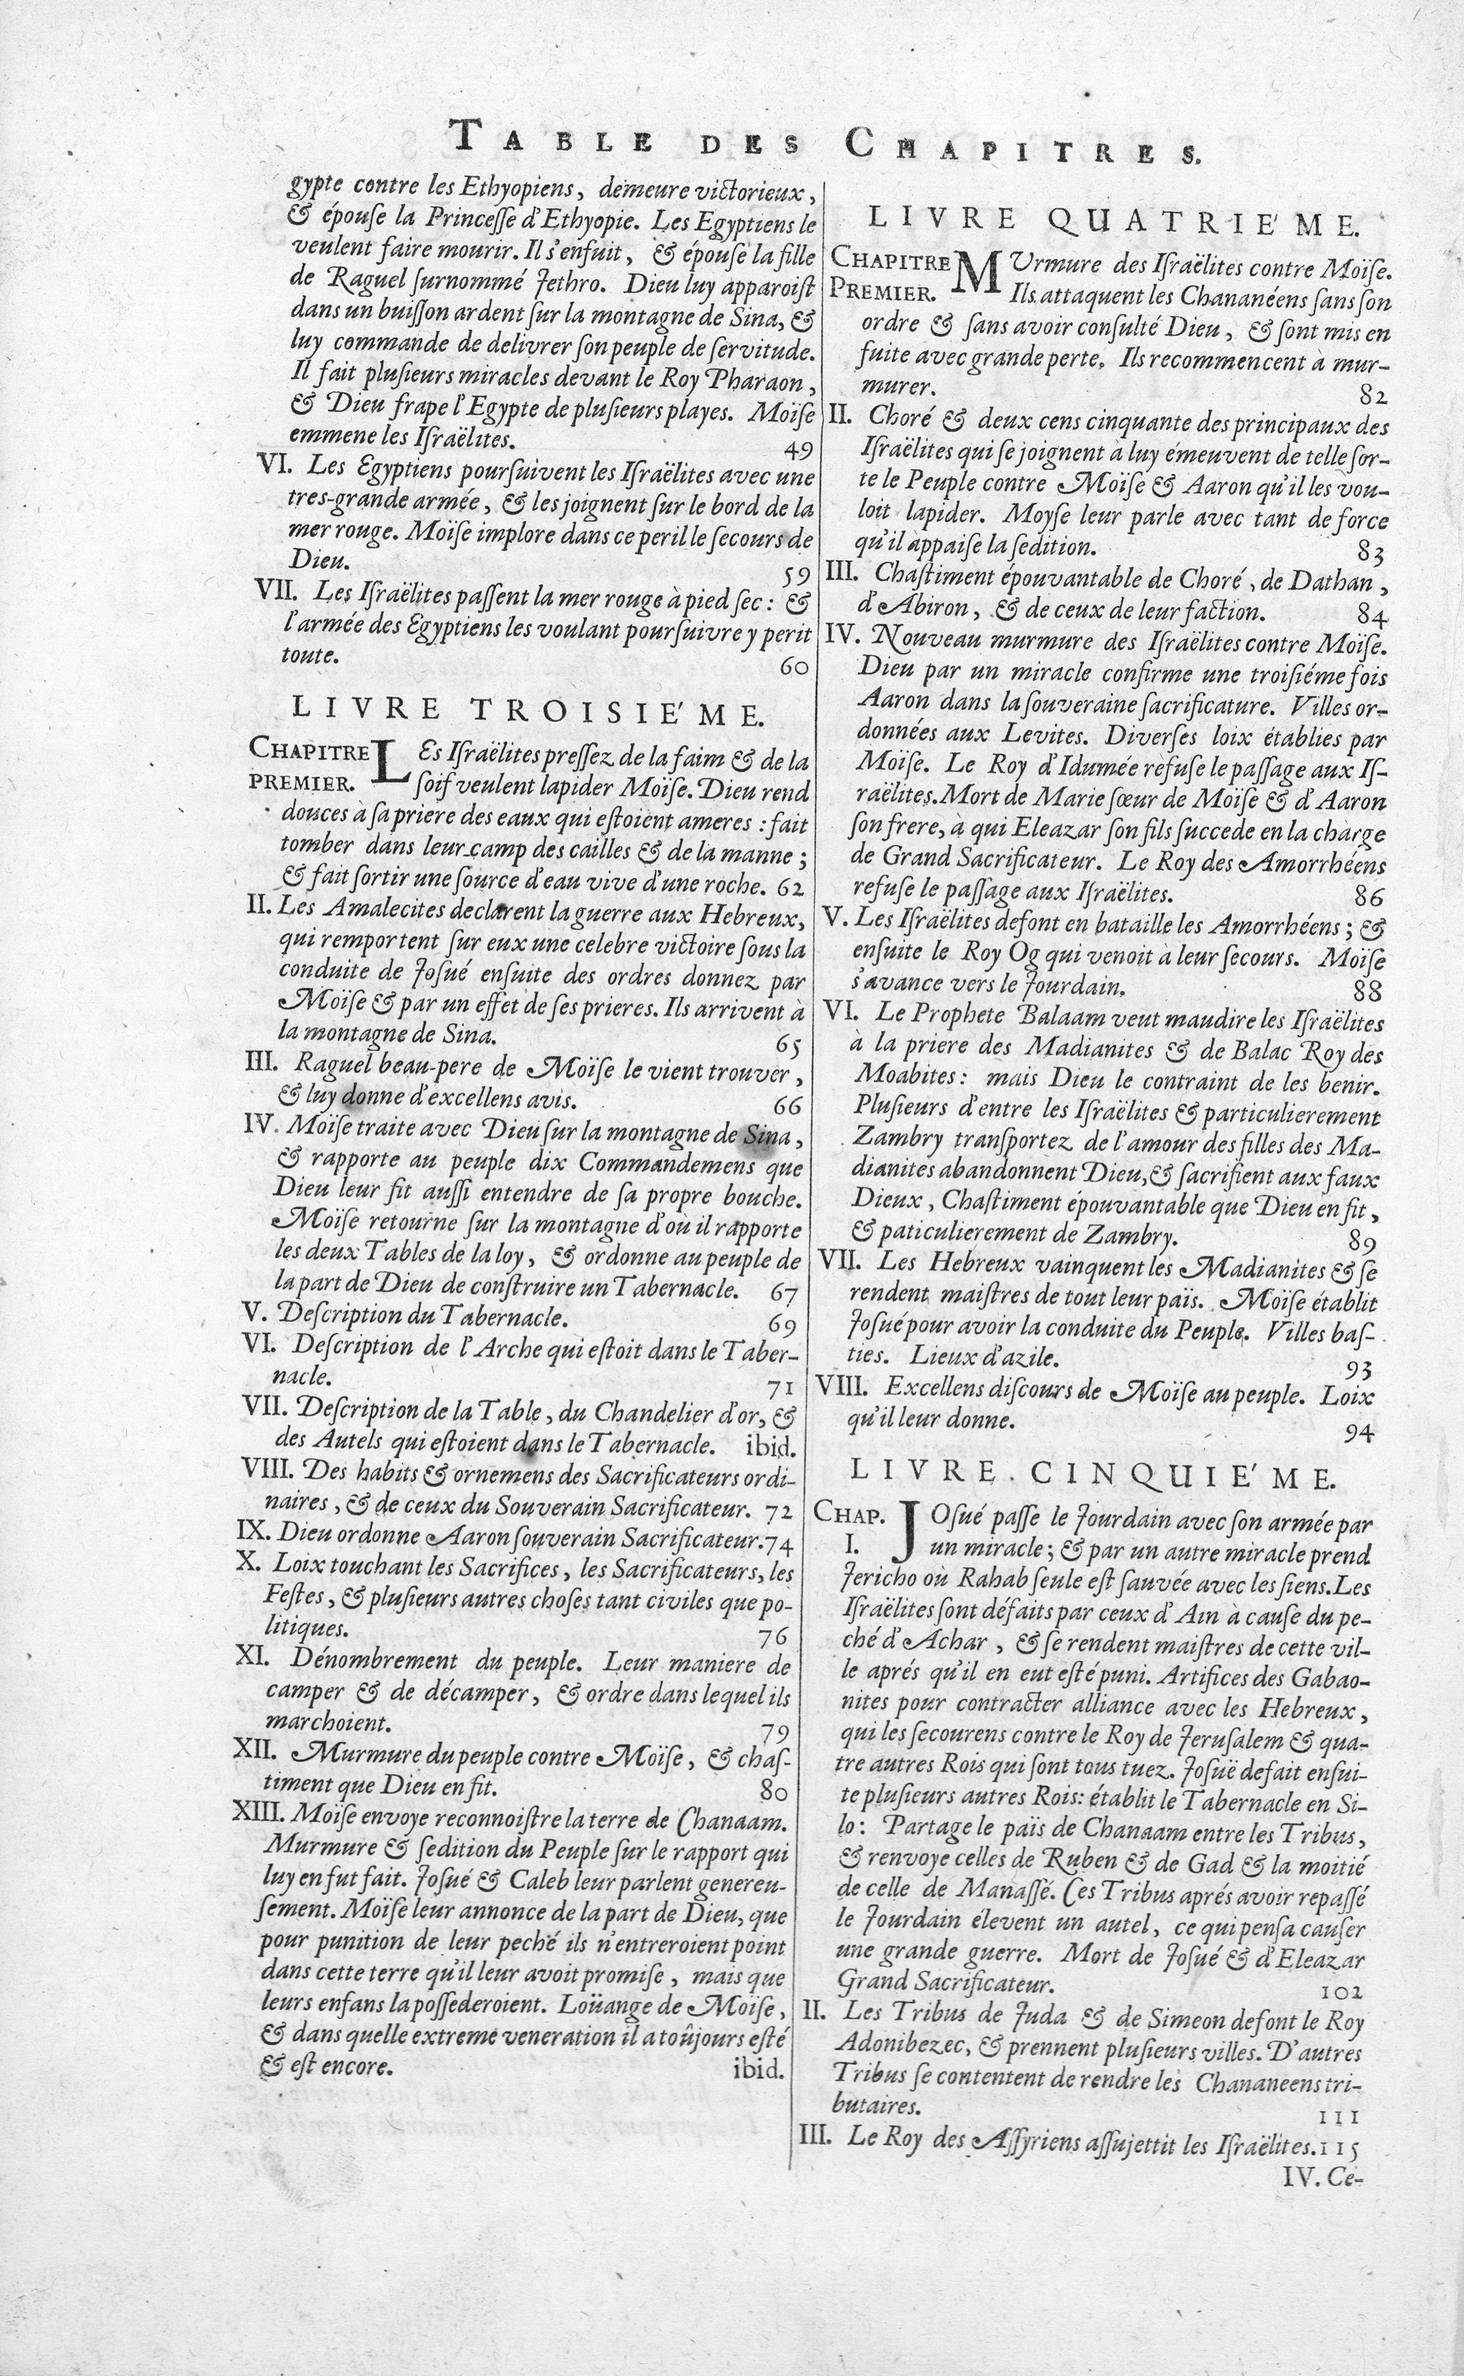 TABLE DES CHAPITRES.
gypte contre les Ethyopiens, demeure victorieux,
& épouſe la Princeſſe d'Ethyopie. Les Egyptiens le
veulent faire mourir. Il s'enfuit, & épouſe la fille
de Raguel ſurnommé Jethro. Dieu luy apparoiſt
dans un buiſſon ardent ſur la montagne de Sina, &
luy commande de delivrer ſon peuple de ſervitude.
Il fait pluſieurs miracles devant le Roy Pharaon,
& Dieu frape l'Egypte de pluſieurs playes. Moïſe
emmene les Iſraëlites. 49
VI. Les Egyptiens pourſuivent les Iſraëlites avec une
tres-grande armée, & les joignent ſur le bord de la
mer rouge. Moïſe implore dans ce peril le ſecours de
Dieu. 59
VII. Les Iſraëlites paſſent la mer rouge à pied ſec: &
l'armée des Egyptiens les voulant pourſuivre y perit
toute. 60
LIVRE TROISIE'ME.
CHAPITRE LEs Iſraëlites preſſez de la faim & de la
PREMIER. ſoif veulent lapider Moïſe. Dieu rend
douces à ſa priere des eaux qui eſtoient ameres : fait
tomber dans leur camp des cailles & de la manne ;
& fait ſortir une ſource d'eau vive d'une roche. 62
II. Les Amalecites declarent la guerre aux Hebreux,
qui remportent ſur eux une celebre victoire ſous la
conduite de Joſué enſuite des ordres donnez par
Moïſe & par un effet de ſes prieres. Ils arrivent à
la montagne de Sina. 65
III. Raguel beau-pere de Moïſe le vient trouver,
& luy donne d'excellens avis. 66
IV. Moïſe traite avec Dieu ſur la montagne de Sina,
& rapporte au peuple dix Commandemens que
Dieu leur fit auſſi entendre de ſa propre bouche.
Moïſe retourne ſur la montagne d'où il rapporte
les deux Tables de la loy, & ordonne au peuple de
la part de Dieu de conſtruire un Tabernacle. 67
V. Deſcription du Tabernacle. 69
VI. Deſcription de l'Arche qui eſtoit dans le Taber-
nacle. 71
VII. Deſcription de la Table, du Chandelier d'or, &
des Autels qui eſtoient dans le Tabernacle. ibid.
VIII. Des habits & ornemens des Sacrificateurs ordi-
naires, & de ceux du Souverain Sacrificateur. 72
IX. Dieu ordonne Aaron ſouverain Sacrificateur. 74
X. Loix touchant les Sacrifices, les Sacrificateurs, les
Feſtes, & pluſieurs autres choſes tant civiles que po-
litiques. 76
XI. Dénombrement du peuple. Leur maniere de
camper & de décamper, & ordre dans lequel ils
marchoient. 79
XII. Murmure du peuple contre Moïſe, & chaſ-
timent que Dieu en fit. 80
XIII. Moïſe envoye reconnoiſtre la terre de Chanaam.
Murmure & ſedition du Peuple ſur le rapport qui
luy en fut fait. Joſué & Caleb leur parlent genereu-
ſement. Moïſe leur annonce de la part de Dieu, que
pour punition de leur peché ils n'entreroient point
dans cette terre qu'il leur avoit promiſe, mais que
leurs enfans la poſſederoient. Loüange de Moïſe,
& dans quelle extreme veneration il a toûjours eſté
& eſt encore. ibid.
LIVRE QUATRIE'ME.
CHAPITRE MUrmure des Iſraëlites contre Moïſe.
PREMIER. Ils attaquent les Chananéens ſans ſon
ordre & ſans avoir conſulté Dieu, & ſont mis en
fuite avec grande perte. Ils recommencent à mur-
murer. 82
II. Choré & deux cens cinquante des principaux des
Iſraëlites qui ſe joignent à luy émeuvent de telle ſor-
te le Peuple contre Moïſe & Aaron qu'il les vou-
loit lapider. Moyſe leur parle avec tant de force
qu'il appaiſe la ſedition. 83
III. Chaſtiment épouvantable de Choré, de Dathan,
d'Abiron, & de ceux de leur faction. 84
IV. Nouveau murmure des Iſraëlites contre Moïſe.
Dieu par un miracle confirme une troiſiéme fois
Aaron dans la ſouveraine ſacrificature. Villes or-
données aux Levites. Diverſes loix établies par
Moïſe. Le Roy d'Idumée refuſe le paſſage aux Iſ-
raëlites. Mort de Marie ſœur de Moïſe & d'Aaron
ſon frere, à qui Eleazar ſon fils ſuccede en la charge
de Grand Sacrificateur. Le Roy des Amorrhéens
refuſe le paſſage aux Iſraëlites. 86
V. Les Iſraëlites defont en bataille les Amorrhéens ; &
enſuite le Roy Og qui venoit à leur ſecours. Moïſe
s'avance vers le Jourdain. 88
VI. Le Prophete Balaam veut maudire les Iſraëlites
à la priere des Madianites & de Balac Roy des
Moabites : mais Dieu le contraint de les benir.
Pluſieurs d'entre les Iſraëlites & particulierement
Zambry tranſportez de l'amour des filles des Ma-
dianites abandonnent Dieu, & ſacrifient aux faux
Dieux, Chaſtiment épouvantable que Dieu en fit,
& paticulierement de Zambry. 89
VII. Les Hebreux vainquent les Madianites & ſe
rendent maiſtres de tout leur païs. Moïſe établit
Joſué pour avoir la conduite du Peuple. Villes baſ-
ties. Lieux d'azile. 93
VIII. Excellens diſcours de Moïſe au peuple. Loix
qu'il leur donne. 94
LIVRE CINQUIE'ME.
CHAP. JOſué paſſe le Jourdain avec ſon armée par
I. un miracle ; & par un autre miracle prend
Jericho où Rahab ſeule eſt ſauvée avec les ſiens. Les
Iſraëlites ſont défaits par ceux d'Ain à cauſe du pe-
ché d'Achar, & ſe rendent maiſtres de cette vil-
le aprés qu'il en eut eſté puni. Artifices des Gabao-
nites pour contracter alliance avec les Hebreux,
qui les ſecourens contre le Roy de Jeruſalem & qua-
tre autres Rois qui ſont tous tuez. Joſuë defait enſui-
te pluſieurs autres Rois : établit le Tabernacle en Si-
lo : Partage le païs de Chanaam entre les Tribus,
& renvoye celles de Ruben & de Gad & la moitié
de celle de Manaſſé. Ces Tribus aprés avoir repaſſé
le Jourdain élevent un autel, ce qui penſa cauſer
une grande guerre. Mort de Joſué & d'Eleazar
Grand Sacrificateur. 102
II. Les Tribus de Juda & de Simeon defont le Roy
Adonibezec, & prennent pluſieurs villes. D'autres
Tribus ſe contentent de rendre les Chananeens tri-
butaires. 111
III. Le Roy des Aſſyriens aſſujettit les Iſraëlites. 115
IV. Ce-